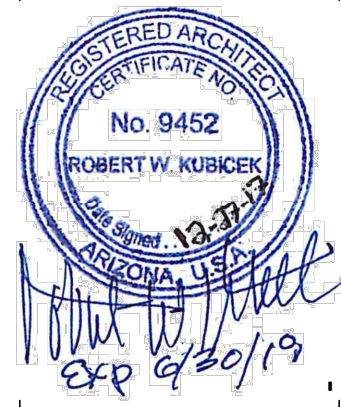 REGISTERED ARCHITECT
CERTIFICATE NO.
No. 9452
ROBERT W. KUBICEK
Date Signed 12-27-17
ARIZONA, U.S.A.
EXP 6/30/19